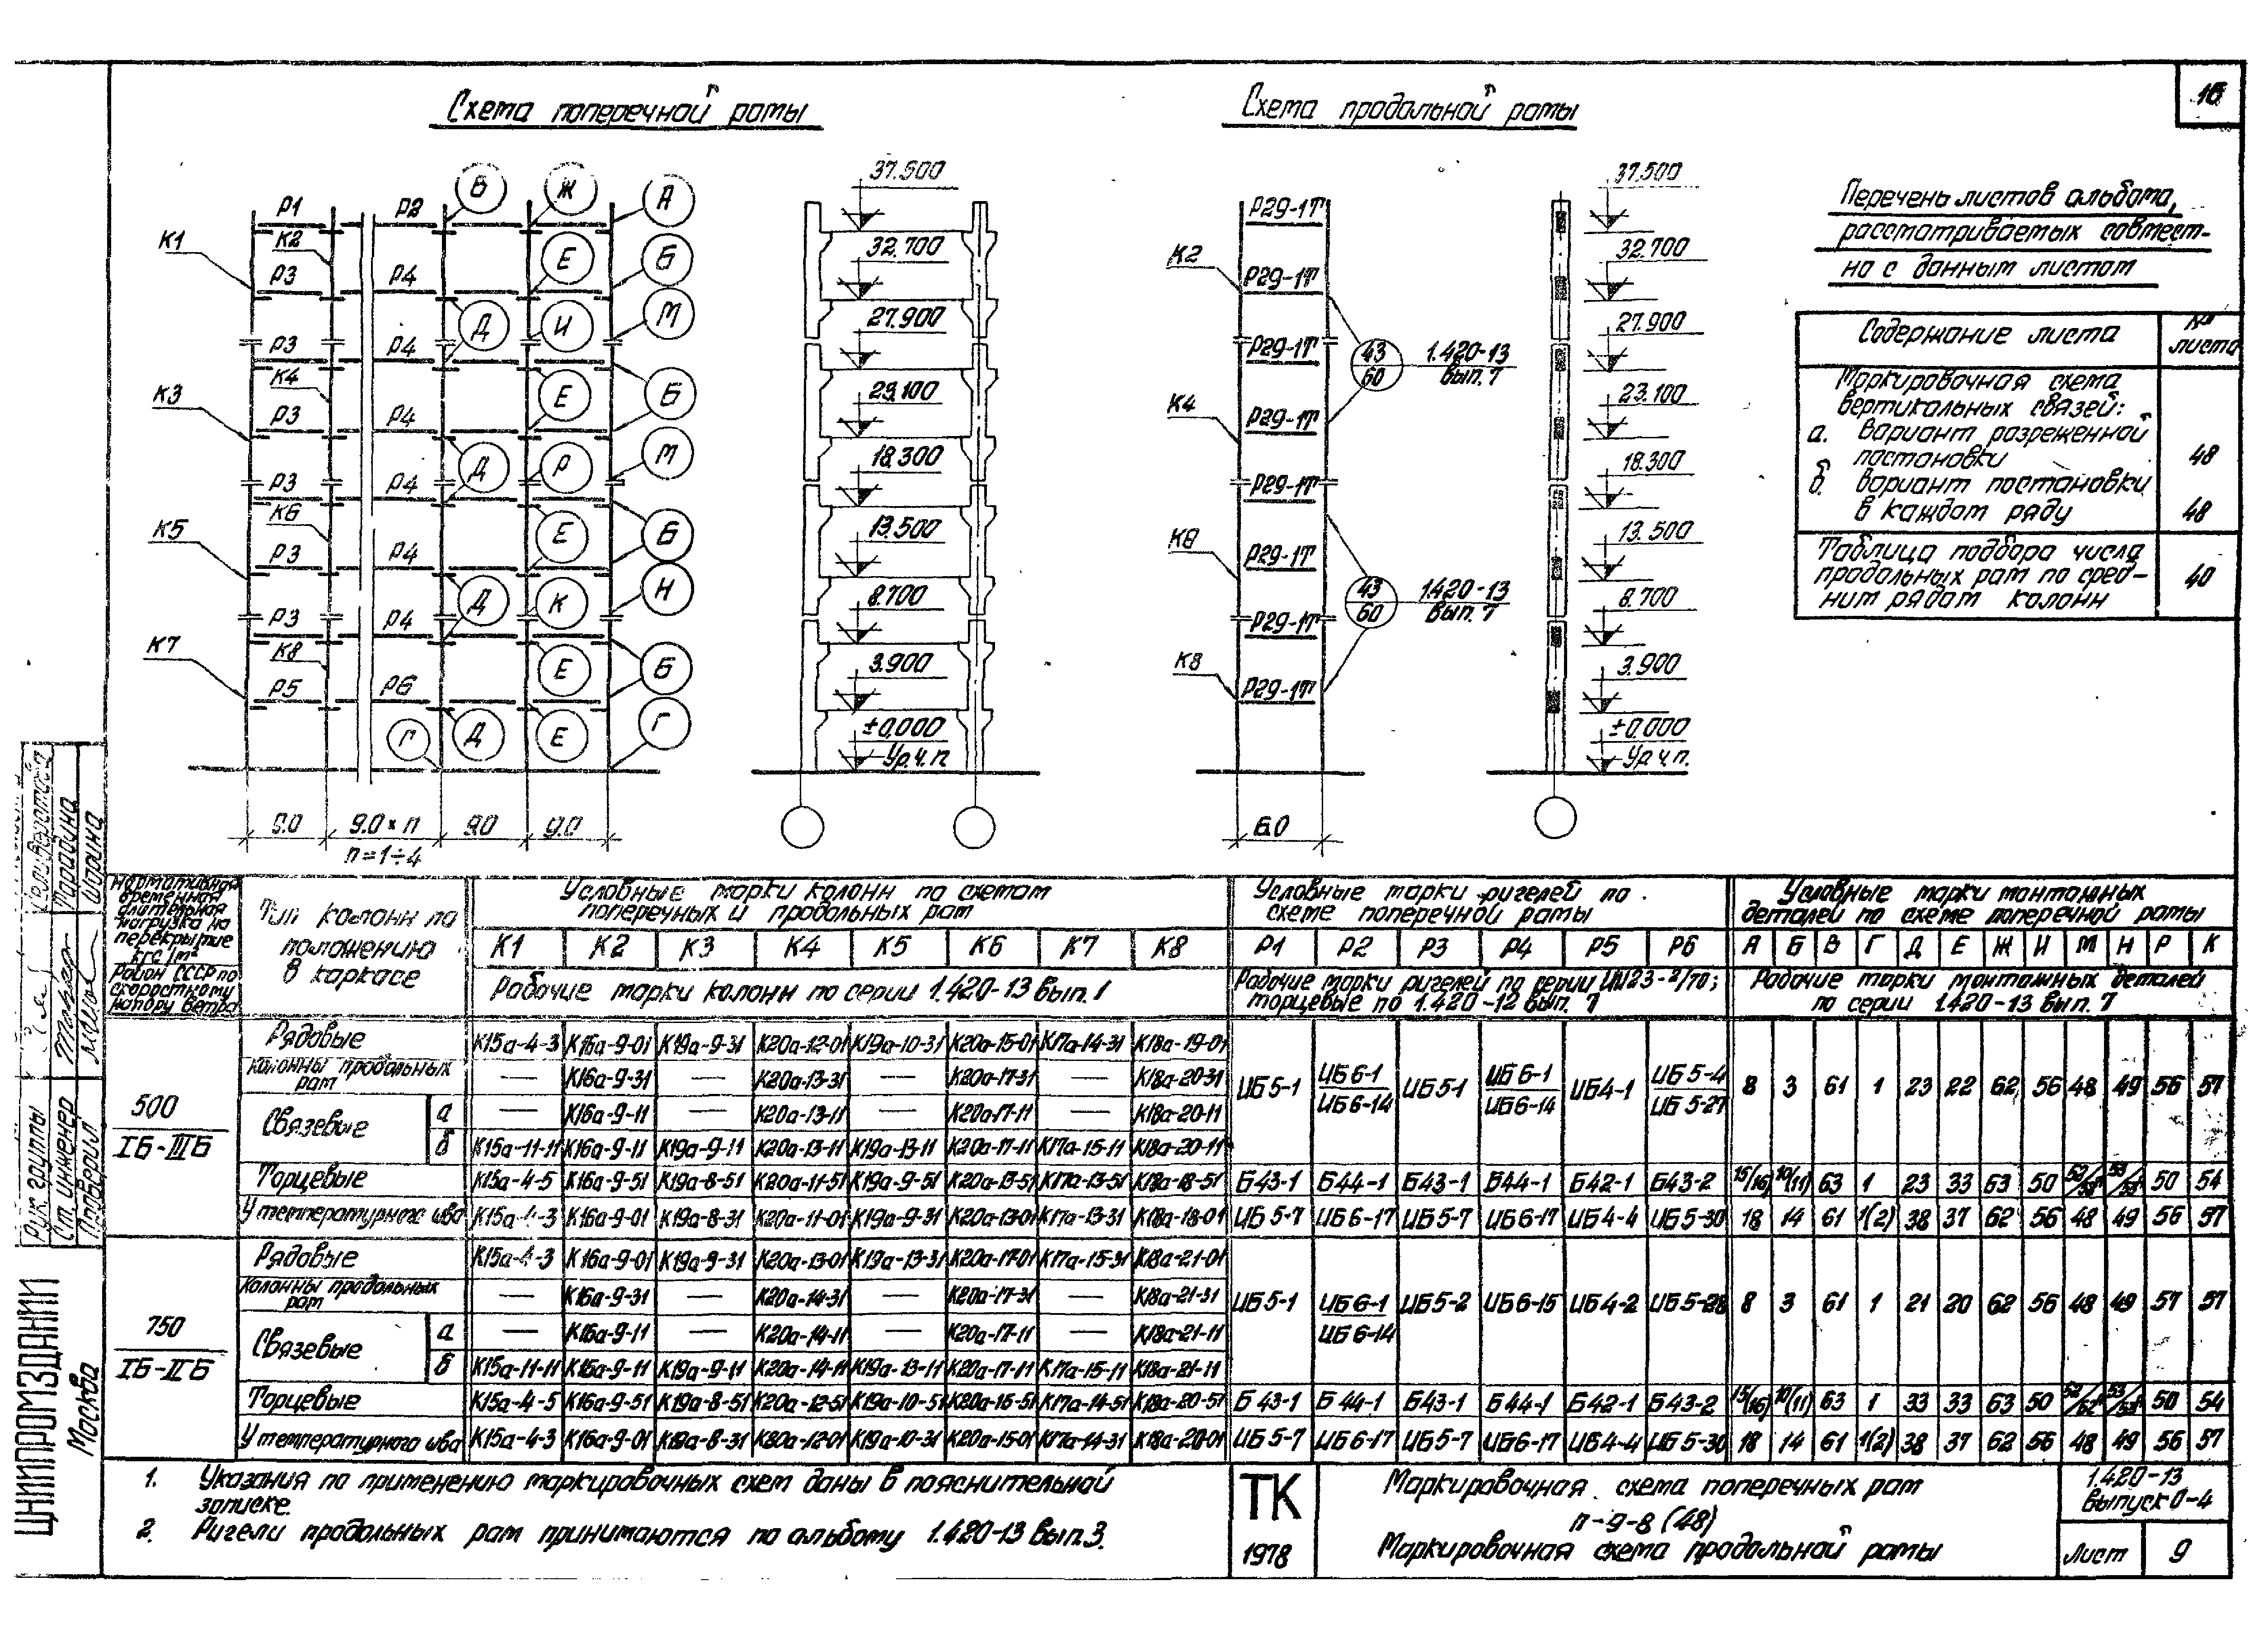 16
Схема поперечной рамы
Схема продольной рамы
Р1 Р2 В Ж А
К1 К2 Е Б
Р3 Р4
Д И М
Р3 Р4
К4 Е Б
К3 Р3 Р4
Д Р М
Р3 Р4
К6 Е Б
К5 Р3 Р4
Д К Н
Р3 Р4
К8 Е Б
К7 Р5 Р6
Г Д Е Г
9.0 × п 9.0 9.0
п=1÷4
37.500
32.700
27.900
23.100
18.300
13.500
8.700
3.900
±0,000
Ур.ч.п.
Р29-1Т
К2
Р29-1Т
Р29-1Т
43 1.420-13
60 вып. 7
К4
Р29-1Т
Р29-1Т
Р29-1Т
43 1.420-13
60 вып. 7
Р29-1Т
К8
Р29-1Т
6.0
37.500
32.700
27.900
23.100
18.300
13.500
8.700
3.900
±0,000
Ур.ч.п.
Перечень листов альбома,
рассматриваемых совмест-
но с данным листом
Содержание листа
листа
Маркировочная схема
вертикальных связей:
а. вариант разреженной
постановки 48
б. вариант постановки
в каждом ряду 48
Таблица подбора числа
продольных рам по сред- 40
ним рядам колонн
Нормативная
временная
длительная
нагрузка на
перекрытие
кгс/м²
Район СССР по
скоростному
напору ветра
Тип колонн по
положению
в каркасе
Условные марки колонн по схемам
поперечных и продольных рам
К1 К2 К3 К4 К5 К6 К7 К8
Рабочие марки колонн по серии 1.420-13 вып. 1
Условные марки ригелей по
схеме поперечной рамы
Р1 Р2 Р3 Р4 Р5 Р6
Рабочие марки ригелей по серии ИИ23-2/70;
торцевые по 1.420-12 вып. 7
Условные марки монтажных
деталей по схеме поперечной рамы
А Б В Г Д Е Ж И М Н Р К
Рабочие марки монтажных деталей
по серии 1.420-13 вып. 7
500
IБ-IIIБ
Рядовые К15а-4-3 К16а-9-01 К19а-9-31 К20а-12-01 К19а-10-31 К20а-15-01 К17а-14-31 К18а-19-01
Колонны продольных
рам — К16а-9-31 — К20а-13-31 — К20а-17-31 — К18а-20-31
Связевые а — К16а-9-11 — К20а-13-11 — К20а-17-11 — К18а-20-11
б К15а-11-11 К16а-9-11 К19а-9-11 К20а-13-11 К19а-13-11 К20а-17-11 К17а-15-11 К18а-20-11
ИБ5-1 ИБ6-1 ИБ5-1 ИБ6-1 ИБ4-1 ИБ5-4 8 3 61 1 23 22 62 56 48 49 56 57
ИБ6-14 ИБ6-14 ИБ5-27
Торцевые К15а-4-5 К16а-9-51 К19а-8-51 К20а-11-51 К19а-9-51 К20а-13-51 К17а-13-51 К18а-18-51 Б43-1 Б44-1 Б43-1 Б44-1 Б42-1 Б43-2 15/(16) 10/(11) 63 1 23 33 63 50 50 54
У температурного шва К15а-4-3 К16а-9-01 К19а-8-31 К20а-11-01 К19а-9-31 К20а-13-01 К17а-13-31 К18а-18-01 ИБ5-7 ИБ6-17 ИБ5-7 ИБ6-17 ИБ4-4 ИБ5-30 18 14 61 1(2) 38 37 62 56 48 49 56 57
750
IБ-IIБ
Рядовые К15а-4-3 К16а-9-01 К19а-9-31 К20а-13-01 К19а-13-31 К20а-17-01 К17а-15-31 К18а-21-01
Колонны продольных
рам — К16а-9-31 — К20а-14-31 — К20а-17-31 — К18а-21-31
Связевые а — К16а-9-11 — К20а-14-11 — К20а-17-11 — К18а-21-11
б К15а-11-11 К16а-9-11 К19а-9-11 К20а-14-11 К19а-13-11 К20а-17-11 К17а-15-11 К18а-21-11
ИБ5-1 ИБ6-1 ИБ5-2 ИБ6-15 ИБ4-2 ИБ5-28 8 3 61 1 21 20 62 56 48 49 57 57
ИБ6-14
Торцевые К15а-4-5 К16а-9-51 К19а-8-51 К20а-12-51 К19а-10-51 К20а-16-51 К17а-14-51 К18а-20-51 Б43-1 Б44-1 Б43-1 Б44-1 Б42-1 Б43-2 15/(16) 10/(11) 63 1 33 33 63 50 50 54
У температурного шва К15а-4-3 К16а-9-01 К19а-8-31 К80а-12-01 К19а-10-31 К20а-15-01 К17а-14-31 К18а-20-01 ИБ5-7 ИБ6-17 ИБ5-7 ИБ6-17 ИБ4-4 ИБ5-30 18 14 61 1(2) 38 37 62 56 48 49 56 57
1. Указания по применению маркировочных схем даны в пояснительной
записке.
2. Ригели продольных рам принимаются по альбому 1.420-13 вып.3.
ТК
1978
Маркировочная схема поперечных рам
п-9-8 (48)
Маркировочная схема продольной рамы
1.420-13
выпуск 0-4
Лист 9
Рук. группы
Ст. инженер
Проверил
Тарадина
Шарина
ЦНИИПРОМЗДАНИЙ
Москва